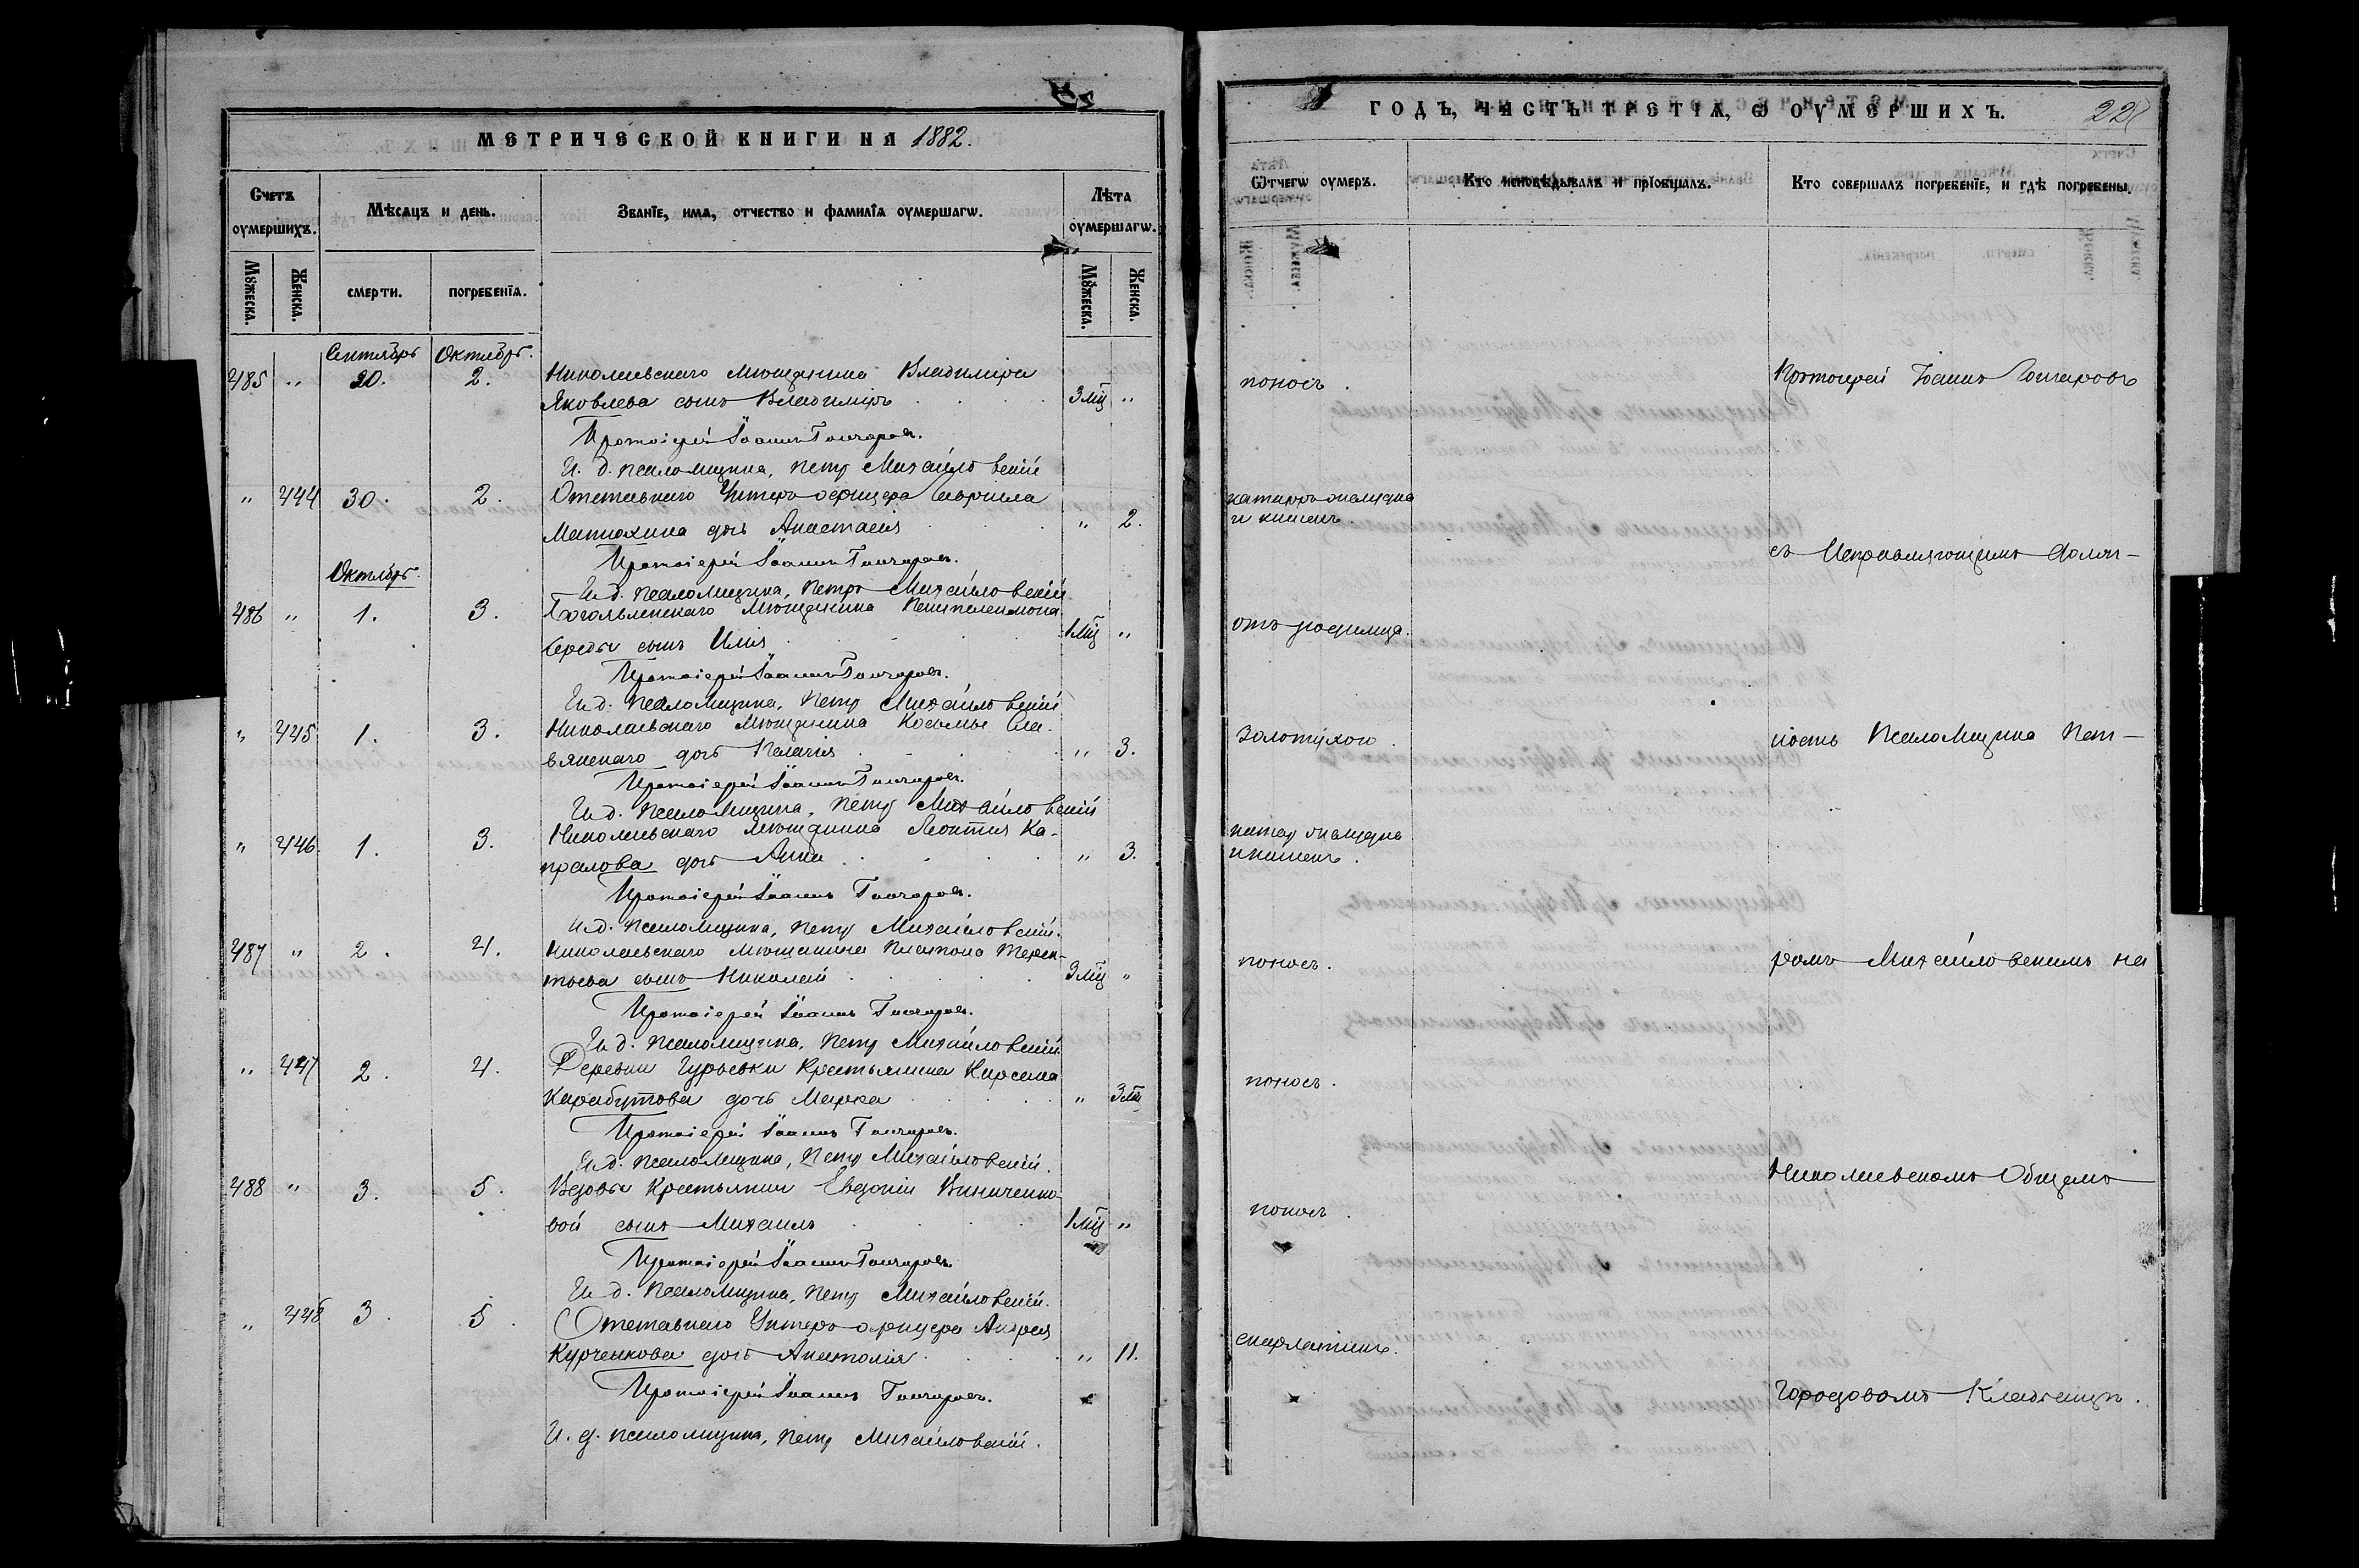 МЕТРИЧЕСКОЙ КНИГИ НА 1882.
Счетъ оумершихъ.
Мѣсяцъ и день.
Званіе, имя, отчество и фамилія оумершагѡ.
Лѣта оумершагѡ.
Мꙋжеска.
Женска.
смерти.
погребенія.
Мꙋжеска.
Женска.
Сентябрь Октябрь.
485 " 20. 2. Николаевскаго мѣщанина Владиміра
Яковлева сынъ Владиміръ 3 мц "
Протоіерей Іоаннъ Гончаровъ.
И. д. псаломщика, Петръ Михайловскій
" 444 30. 2. Отставнаго Унтеръ офицера Гавріила
Матюхина дочь Анастасія " 2.
Протоіерей Іоаннъ Гончаровъ.
Октябрь.
И. д. псаломщика, Петръ Михайловскій
486 " 1. 3. Богоявленскаго Мѣщанина Пантелеимона
Середы сынъ Илія 1 мц "
Протоіерей Іоаннъ Гончаровъ.
И. д. псаломщика, Петръ Михайловскій
" 445 1. 3. Николаевскаго Мѣщанина Косьмы Сла-
вянскаго дочь Пелагія " 3.
Протоіерей Іоаннъ Гончаровъ.
И. д. псаломщика, Петръ Михайловскій
" 446 1. 3. Николаевскаго мѣщанина Леонтія Ка-
пралова дочь Анна " 3.
Протоіерей Іоаннъ Гончаровъ.
И. д. псаломщика, Петръ Михайловскій.
487 " 2. 4. Николаевскаго мѣщанина Платона Терен-
тьева сынъ Николай 3 мц "
Протоіерей Іоаннъ Гончаровъ.
И. д. псаломщика, Петръ Михайловскій
" 447 2. 4. Деревни Гурьевки Крестьянина Кирсана
Карабутова дочь Марѳа " 3 мц
Протоіерей Іоаннъ Гончаровъ.
И. д. псаломщика, Петръ Михайловскій.
488 " 3. 5. Вдовы Крестьянки Евдокіи Виниченко-
вой сынъ Михаилъ 1 мц "
Протоіерей Іоаннъ Гончаровъ.
И. д. псаломщика, Петръ Михайловскій.
" 448 3. 5. Отставнаго Унтеръ-офицера Андрея
Курченкова дочь Анатолія " 11.
Протоіерей Іоаннъ Гончаровъ.
И. д. псаломщика, Петръ Михайловскій.
ГОДЪ, ЧАСТЬ ТРЕТІЯ, Ѡ ОУМЕРШИХЪ.
Ѿтчегѡ оумеръ.
Кто исповѣдывалъ и пріобщалъ.
Кто совершалъ погребеніе, и гдѣ погребены.
поносъ. Протоіерей Іоаннъ Гончаровъ
катарръ желудка
и кишекъ.
съ Исправляющимъ долж-
отъ родимца.
Золотухою. ность Псаломщика Пет-
катар желудка
и кишекъ.
поносъ. ромъ Михайловскимъ на
поносъ.
Николаевскомъ Общемъ
поносъ.
скарлатина.
Городовомъ Кладбищѣ.